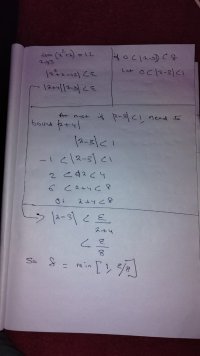 lim (x²+x) = 12
x→3
|x²+x-12| < ε
|x+4||x-3| < ε
if 0 < |x-3| < δ
Let 0 < |x-3| < 1
is |x-3| < 1, need to
bound |x+4|
|x-3| < 1
-1 < |x-3| < 1
2 < x < 4
6 < x+4 < 8
x+4 < 8
|x-3| < ε/x+4
< ε/8
So δ = min [1, ε/8]